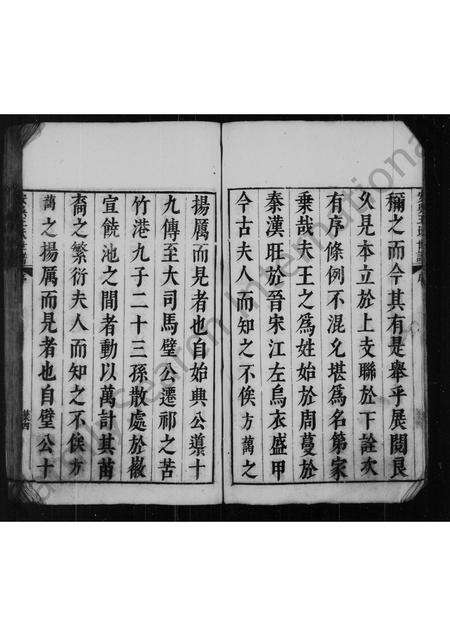 稱之而今其有是舉乎展閱良
久見本立於上支聯於下詮次
有序條例不混允堪為名第家
乗哉夫王之為姓始於周蔓於
秦漢旺於晉宋江左烏衣盛甲
今古夫人而知之不俟方萬之
揚厲而見者也自始興公導十
九傳至大司馬璧公遷祁之苦
竹港九子二十三孫散處於徽
宣饒池之間者動以萬計其苗
裔之繁衍夫人而知之不俟方
萬之揚厲而見者也自璧公十